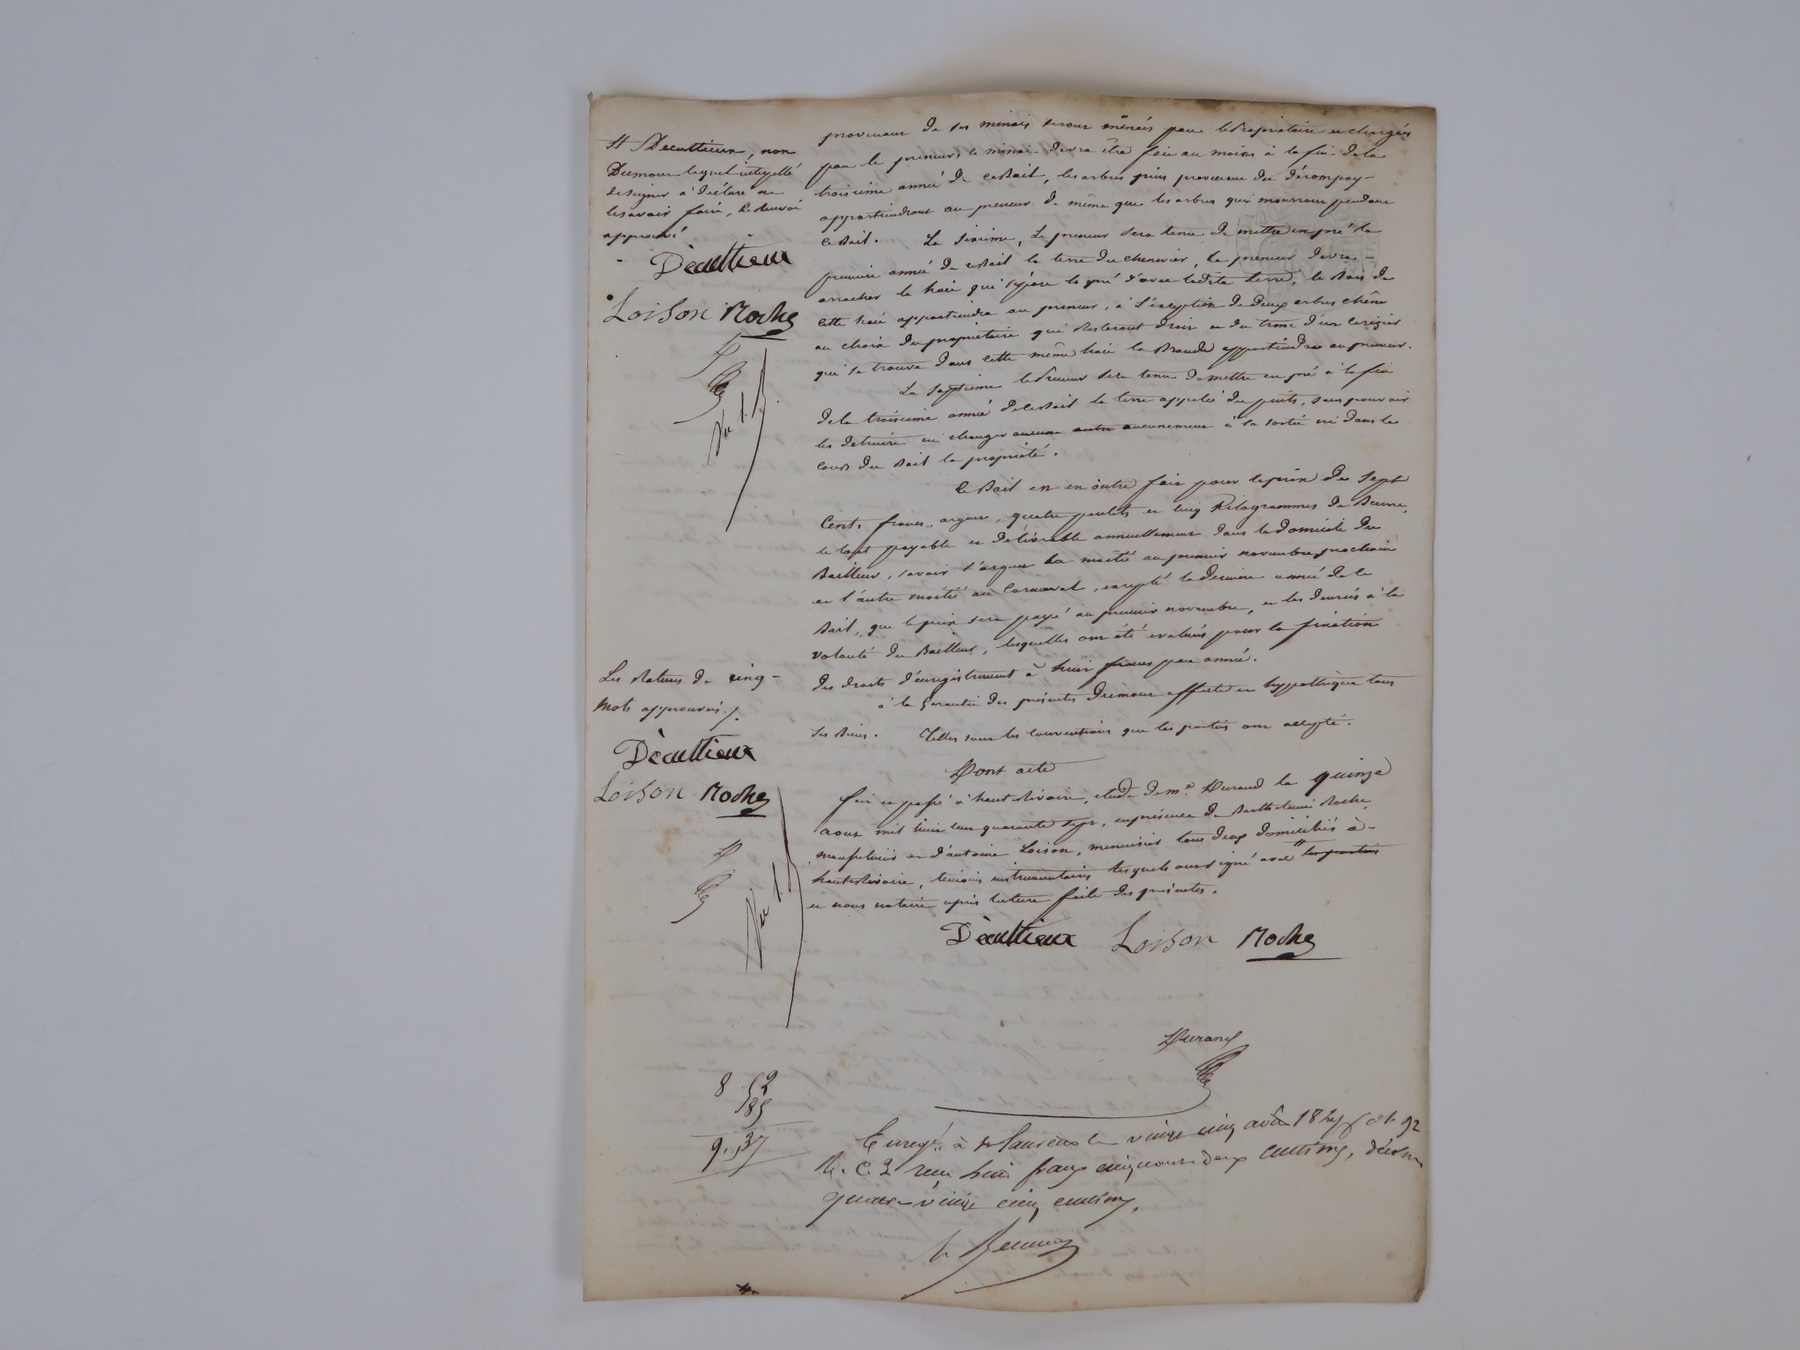 # Décultieux, non
Dumour lequel interpellé
de signer a déclaré ne
le savoir faire, le renvoi
approuvé
Décultieux
Loison Roche
Les ratures de cinq
mots approuvés ./.
Décultieux
Loison Roche
8 52
85
9,37
provenant de ses minais seront par le propriétaire et chargés
par le preneur, le minai devra être fait au moins à la fin de la
troisième année de ce Bail, les arbres pins provenant du
appartiendront au preneur de même que les arbres qui mourront pendant
ce Bail. La sixième, Le preneur sera tenu de mettre en pré la
première année de ce Bail la terre du chenevier, le preneur devra
arracher la haie qui sépare le pré d'avec ladite terre, le Bois de
cette haie appartiendra au preneur, à l'exception de deux arbres chêne
au choix du propriétaire qui resteront droit et du tronc d'un cerisier
qui se trouve dans cette même haie la appartiendra au preneur.
La septième le Preneur sera tenu de mettre en pré à la fin
de la troisième année de ce Bail la terre appelée du puits, sans pouvoir
les détruire ni changer aucunement à sa sortie ni dans le
cours du Bail la propriété.
Ce Bail est en outre fait pour le prix de sept
Cents francs, argent, quatre poulets et cinq Kilogrammes de Beurre,
le tout payable et délivrable annuellement dans le domicile du
Bailleur, savoir l'argent la moitié au premier novembre prochain
et l'autre moitié au Carnaval, excepté la dernière année de ce
Bail, que le prix sera payé au premier novembre, et les denrées à la
volonté du Bailleur, lesquelles ont été évaluées pour la fixation
des droits d'enregistrement à huit francs par année.
à la Garantie des présentes Dumour affecte et hypothèque tous
ses Biens. Telles sont les conventions que les parties ont accepté.
Dont acte
fait et passé à haut Rivoire, étude de me. Durand le quinze
aout mil huit cent quarante sept, en présence de Barthelemi Roche,
et d'antoine Loison, menuisier tous deux domiciliés à
haut Rivoire, témoins instrumentaires lesquels ont signé avec # les parties
et nous notaire après lecture faite des présentes.
Décultieux Loison Roche
Durand
Enregé. à St Laurent le vingt cinq août 1847 fo 92
R. C. 2 reçu huit francs cinquante deux centimes, décime
quatre vingt cinq centimes.